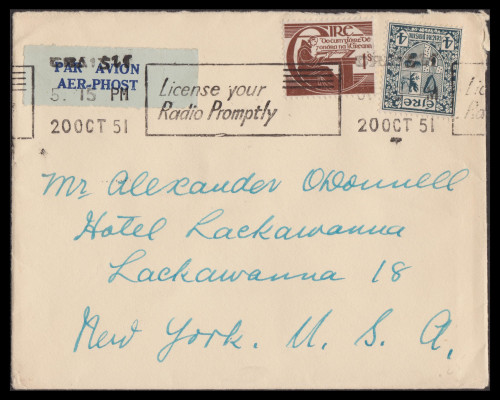 PAR AVION
AER-PHOST
5. 15 PM
20 OCT 51
License your
Radio Promptly
EIRE
Do cum glóire Dé
1s
4
EIRE
20 OCT 51
Mr Alexander O'Donnell
Hotel Lackawanna
Lackawanna 18
New York. U. S. A.